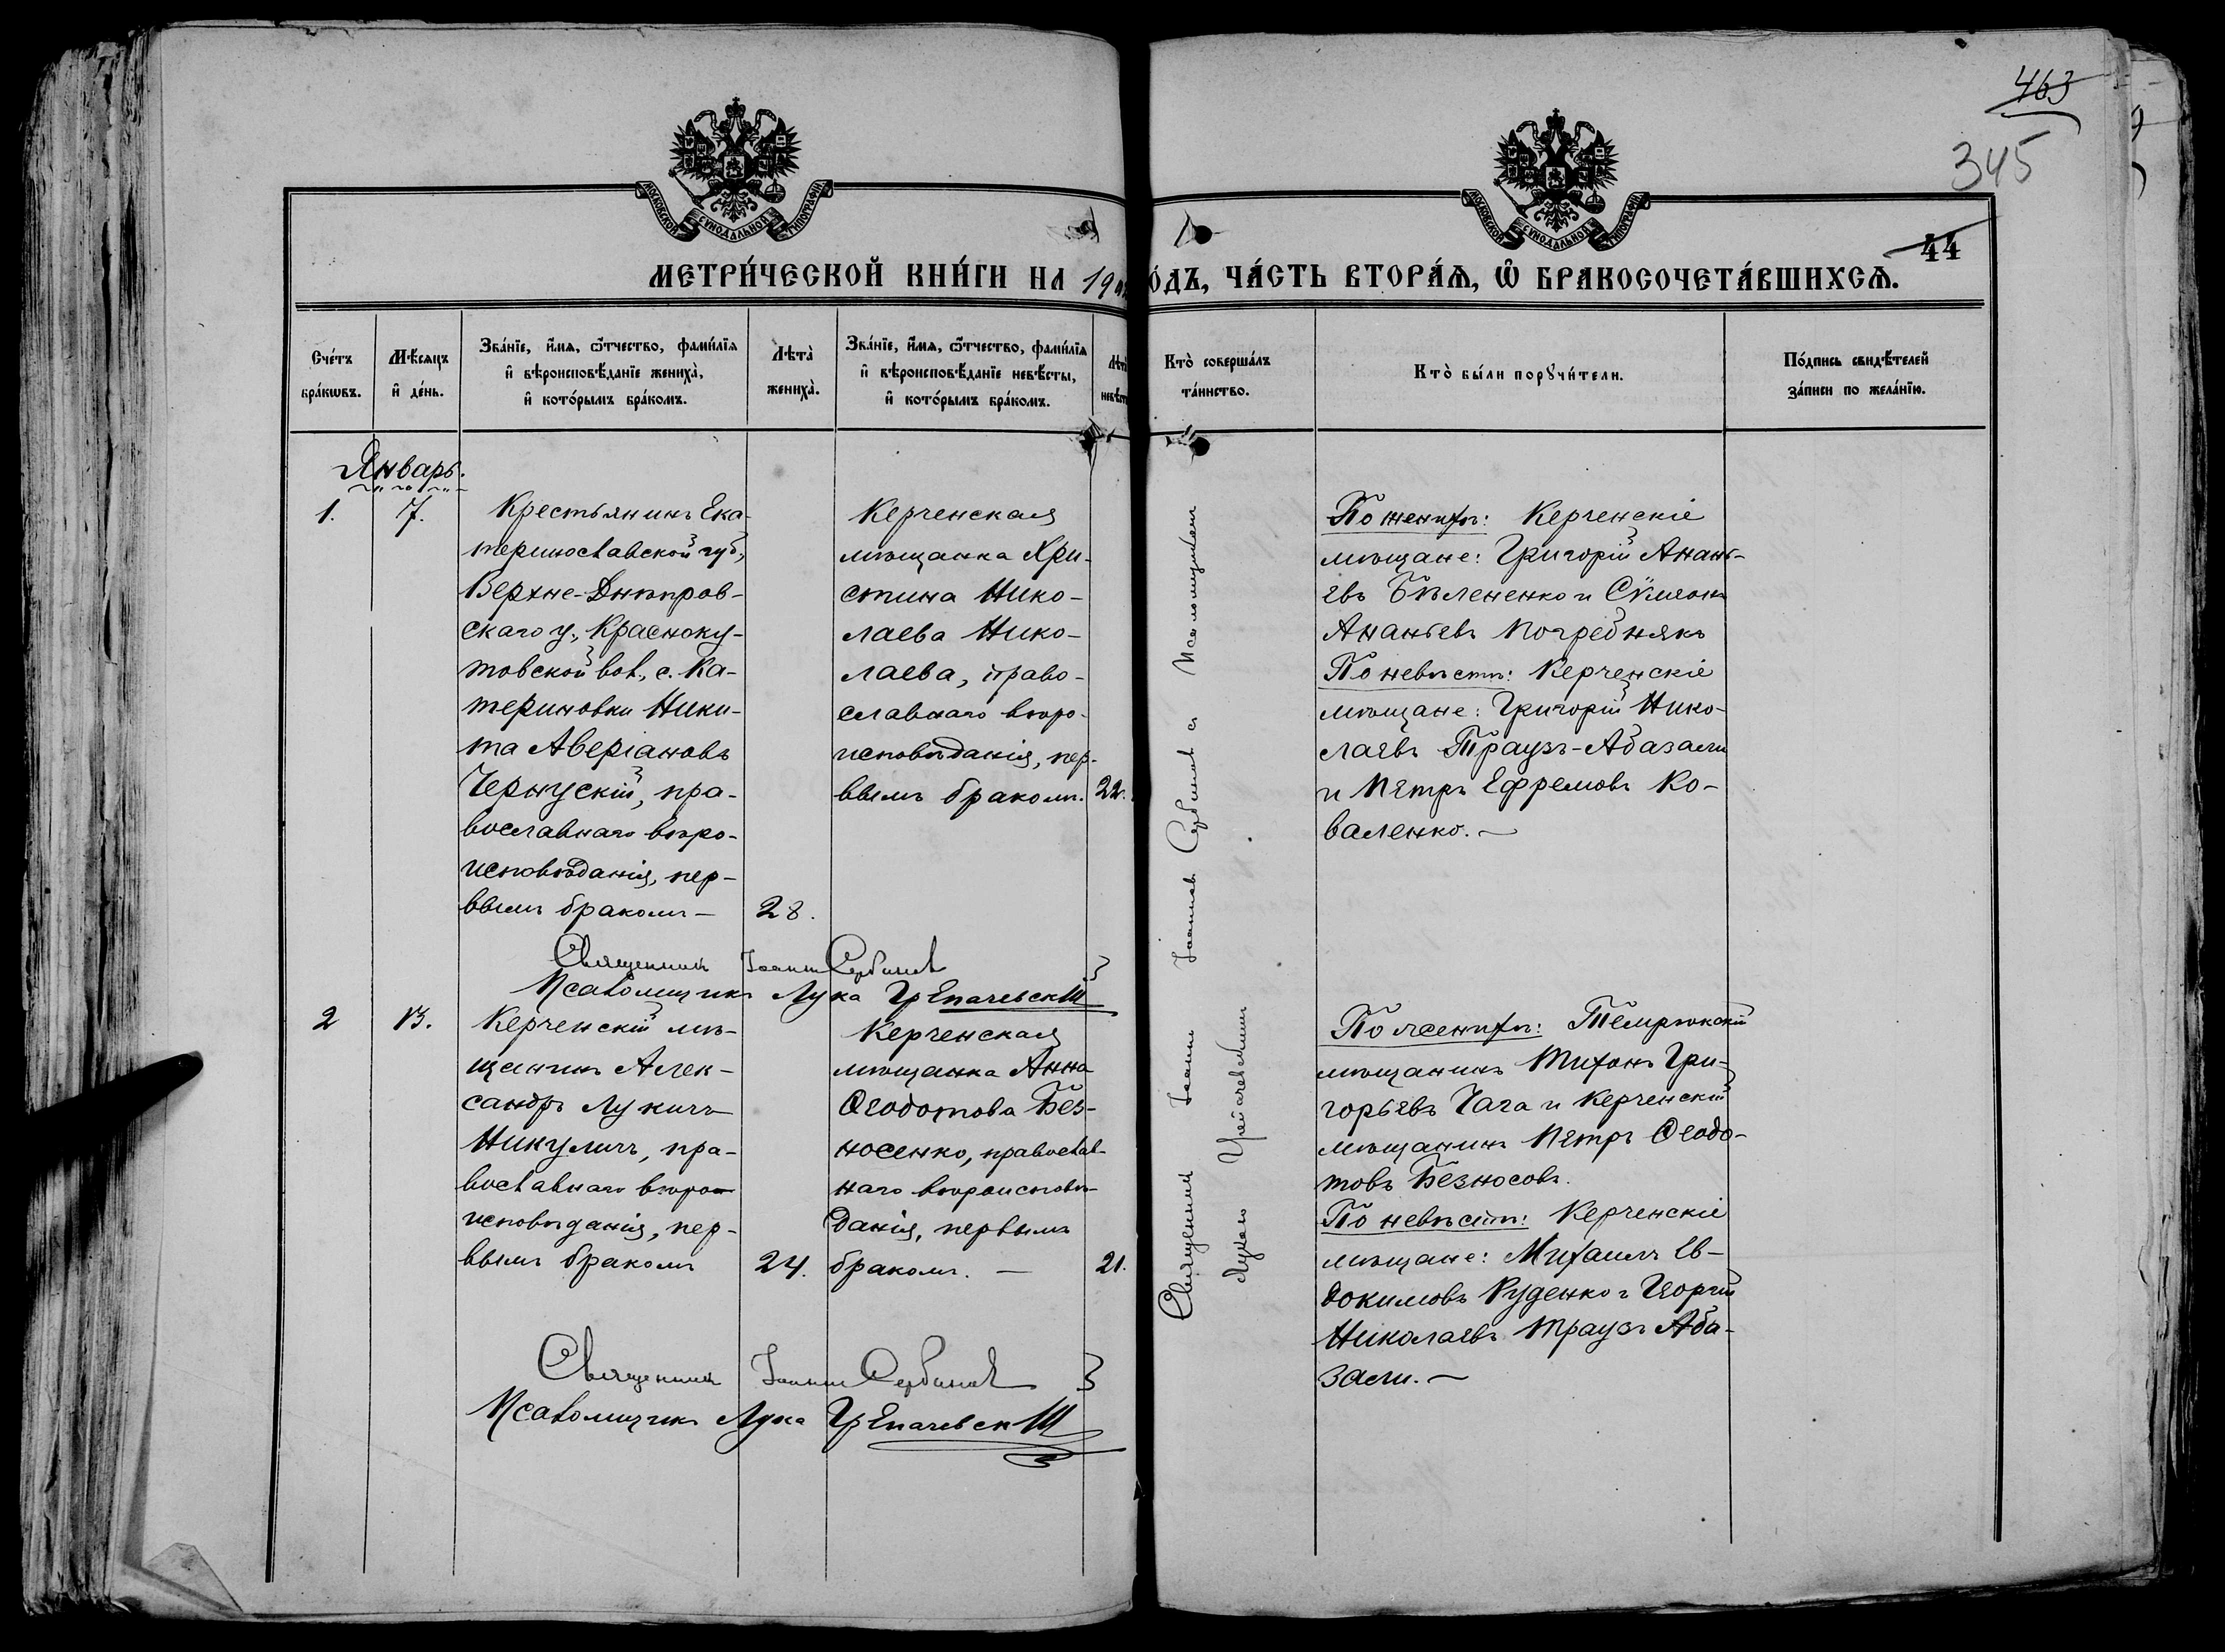 463
345
МОСКОВСКОЙ СѴНОДАЛЬНОЙ ТИПОГРАФІИ
МОСКОВСКОЙ СѴНОДАЛЬНОЙ ТИПОГРАФІИ
44
МЕТРИ́ЧЕСКОЙ КНИ́ГИ НА 19
О́ДЪ, ЧА́СТЬ ВТОРА́Ѧ, Ѡ҆ БРАКОСОЧЕТА́ВШИХСѦ.
Сче́тъ
бра́кѡвъ.
Мѣ́сяцъ
и҆ де́нь.
Зва́нїе, и҆́мѧ, ѻ҆́тчество, фами́лїѧ
и҆ вѣроисповѣ́данїе жениха̀,
и҆ кото́рымъ бра́комъ.
Лѣта̀
жениха̀.
Зва́нїе, и҆́мѧ, ѻ҆́тчество, фами́лїѧ
и҆ вѣроисповѣ́данїе невѣ́сты,
и҆ кото́рымъ бра́комъ.
Лѣта̀
невѣ́ст
Кто̀ соверша́лъ
та́инство.
Кто̀ бы́ли порꙋчи́тели.
По́дпись свидѣ́телей
за́писи по жела́нїю.
Январь.
1.
7.
Крестьянинъ Ека-
теринославской губ.,
Верхне-Днѣпров-
скаго у., Красноку-
товской вол., с. Ка-
териновки Ники-
та Аверіановъ
Чернускій, пра-
вославнаго вѣро-
исповѣданія, пер-
вымъ бракомъ —
28.
Керченская
мѣщанка Хри-
стина Нико-
лаева Нико-
лаева, право-
славнаго вѣро-
исповѣданія, пер-
вымъ бракомъ.
22.
Священникъ Іоаннъ Сербиновъ
Псаломщикъ Лука Цѣпачевскій
Священникъ Іоаннъ Іоанновъ Сербиновъ съ Псаломщикомъ
Лукою
По женихѣ: Керченскіе
мѣщане: Григорій Анань-
евъ Бѣлененко и Сѵмеонъ
Ананьевъ Погреднякъ
По невѣстѣ: Керченскіе
мѣщане: Григорій Нико-
лаевъ Траузъ-Абазали
и Петръ Ефремовъ Ко-
валенко. —
2
13.
Керченскій мѣ-
щанинъ Алек-
сандръ Лукичъ
Никуличъ, пра-
вославнаго вѣро-
исповѣданія, пер-
вымъ бракомъ
24.
Керченская
мѣщанка Анна
Ѳеодотова Без-
носенко, православ-
наго вѣроисповѣ-
данія, первымъ
бракомъ. —
21.
По женихѣ: Темрюкскій
мѣщанинъ Тихонъ Гри-
горьевъ Чага и Керченскій
мѣщанинъ Петръ Ѳеодо-
товъ Безносовъ.
По невѣстѣ: Керченскіе
мѣщане: Михаилъ Ев-
докимовъ Руденко и Георгій
Николаевъ Траузъ Аба-
зали. —
Священникъ Іоаннъ Сербиновъ
Псаломщикъ Лука Цѣпачевскій